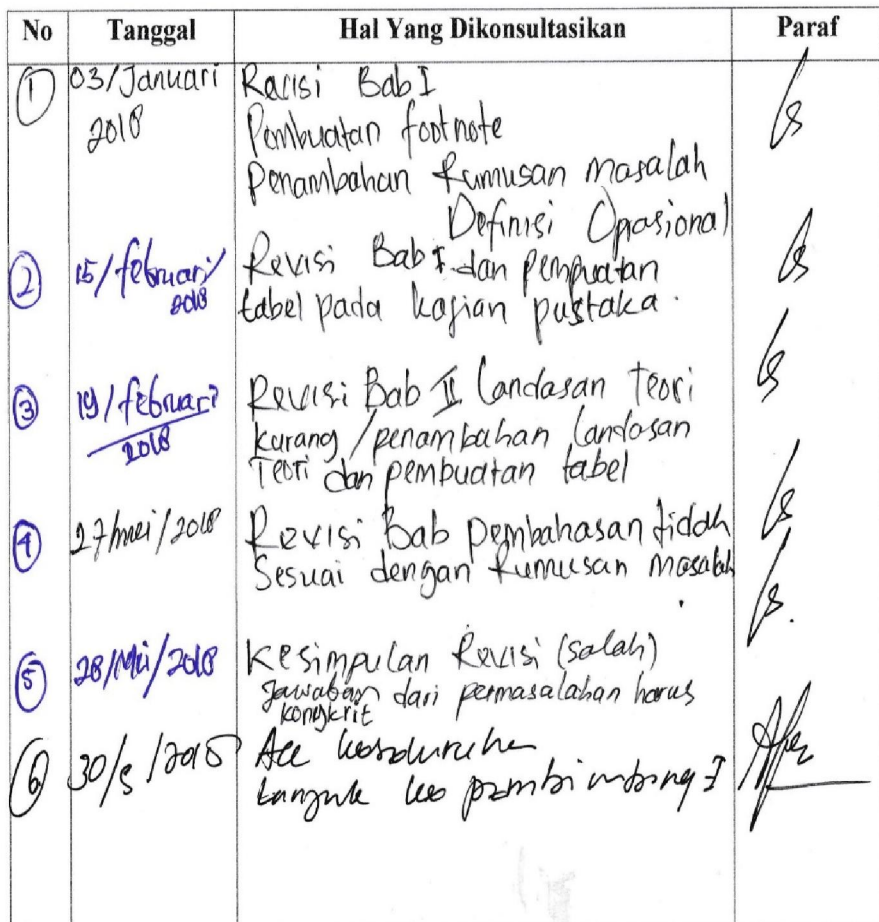 No Tanggal Hal Yang Dikonsultasikan Paraf
1 03/Januari Revisi Bab I
2018 Pembuatan footnote
Penambahan Rumusan Masalah
Definisi Oprasional
2 15/februari/ Revisi Bab I dan pembuatan
2018 tabel pada kajian pustaka.
3 19/februari Revisi Bab II Landasan Teori
2018 kurang/penambahan Landasan
Teori dan pembuatan tabel
4 27/mei/2018 Revisi Bab pembahasan tidak
Sesuai dengan Rumusan Masalah
5 28/Mei/2018 Kesimpulan Revisi (salah)
Jawaban dari permasalahan harus
kongkrit
6 30/5/2018 Acc keseluruhan
Lanjut ke pembimbing I